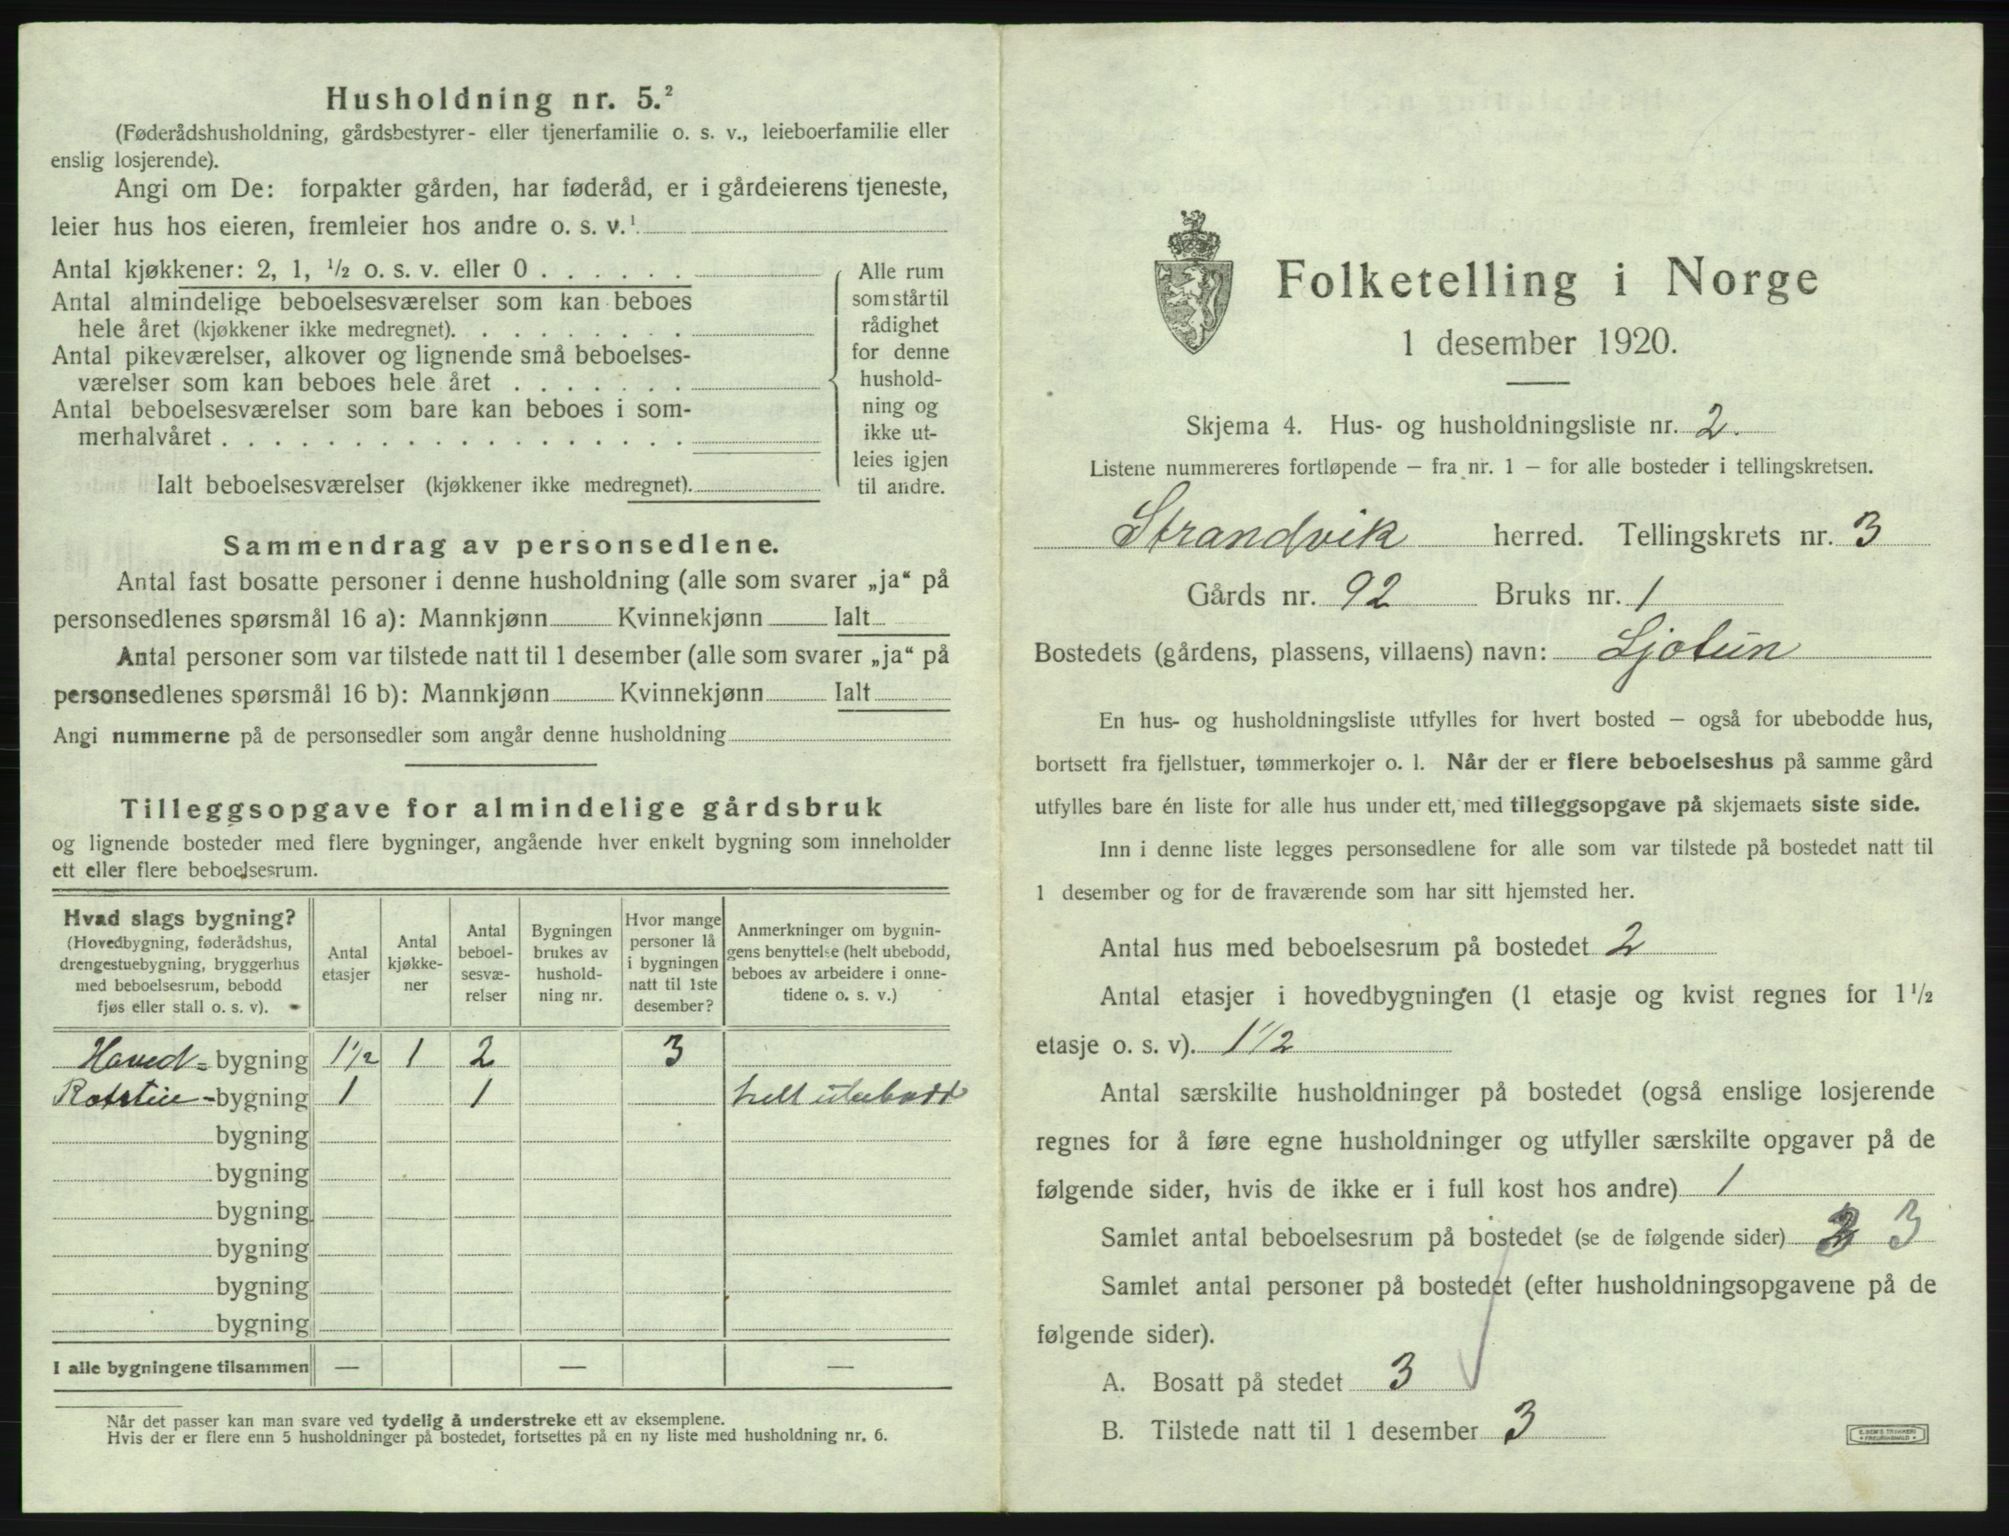 Husholdning nr. 5.²
(Føderådshusholdning, gårdsbestyrer- eller tjenerfamilie o. s. v., leieboerfamilie eller
enslig losjerende).
Angi om De: forpakter gården, har føderåd, er i gårdeierens tjeneste,
leier hus hos eieren, fremleier hos andre o. s. v.¹
Antal kjøkkener: 2, 1, ½ o. s. v. eller 0 . . . . . .
Antal almindelige beboelsesværelser som kan beboes
hele året (kjøkkener ikke medregnet). . . . . . . . .
Antal pikeværelser, alkover og lignende små beboelses-
værelser som kan beboes hele året . . . . . . .
Antal beboelsesværelser som bare kan beboes i som-
merhalvåret . . . . . . . . . . . . . . . . . .
Ialt beboelsesværelser (kjøkkener ikke medregnet).
Alle rum
som står til
rådighet
for denne
hushold-
ning og
ikke ut-
leies igjen
til andre.
Sammendrag av personsedlene.
Antal fast bosatte personer i denne husholdning (alle som svarer „ja“ på
personsedlenes spørsmål 16 a): Mannkjønn Kvinnekjønn Ialt
Antal personer som var tilstede natt til 1 desember (alle som svarer „ja“ på
personsedlenes spørsmål 16 b): Mannkjønn Kvinnekjønn Ialt
Angi nummerne på de personsedler som angår denne husholdning
Tilleggsopgave for almindelige gårdsbruk
og lignende bosteder med flere bygninger, angående hver enkelt bygning som inneholder
ett eller flere beboelsesrum.
Hvad slags bygning?
(Hovedbygning, føderådshus,
drengestuebygning, bryggerhus
med beboelsesrum, bebodd
fjøs eller stall o. s. v).
Antal
etasjer
Antal
kjøkke-
ner
Antal
beboel-
sesvæ-
relser
Bygningen
brukes av
hushold-
ning nr.
Hvor mange
personer lå
i bygningen
natt til 1ste
desember?
Anmerkninger om bygnin-
gens benyttelse (helt ubebodd,
beboes av arbeidere i onne-
tidene o. s. v.)
Hoved- bygning 1½ 1 2 3
-bygning 1 1 helt ubebodd
bygning
bygning
bygning
bygning
bygning
bygning
I alle bygningene tilsammen — — —
Når det passer kan man svare ved tydelig å understreke ett av eksemplene.
Hvis der er flere enn 5 husholdninger på bostedet, fortsettes på en ny liste med husholdning nr. 6.
Folketelling i Norge
1 desember 1920.
Skjema 4. Hus- og husholdningsliste nr. 2.
Listene nummereres fortløpende – fra nr. 1 – for alle bosteder i tellingskretsen.
Strandvik herred. Tellingskrets nr. 3
Gårds nr. 92 Bruks nr. 1
Bostedets (gårdens, plassens, villaens) navn: Ljotun
En hus- og husholdningsliste utfylles for hvert bosted – også for ubebodde hus,
bortsett fra fjellstuer, tømmerkojer o. l. Når der er flere beboelseshus på samme gård
utfylles bare én liste for alle hus under ett, med tilleggsopgave på skjemaets siste side.
Inn i denne liste legges personsedlene for alle som var tilstede på bostedet natt til
1 desember og for de fraværende som har sitt hjemsted her.
Antal hus med beboelsesrum på bostedet 2
Antal etasjer i hovedbygningen (1 etasje og kvist regnes for 1½
etasje o. s. v). 1½
Antal særskilte husholdninger på bostedet (også enslige losjerende
regnes for å føre egne husholdninger og utfyller særskilte opgaver på de
følgende sider, hvis de ikke er i full kost hos andre) 1
Samlet antal beboelsesrum på bostedet (se de følgende sider) 3
Samlet antal personer på bostedet (efter husholdningsopgavene på de
følgende sider).
A. Bosatt på stedet 3
B. Tilstede natt til 1 desember 3